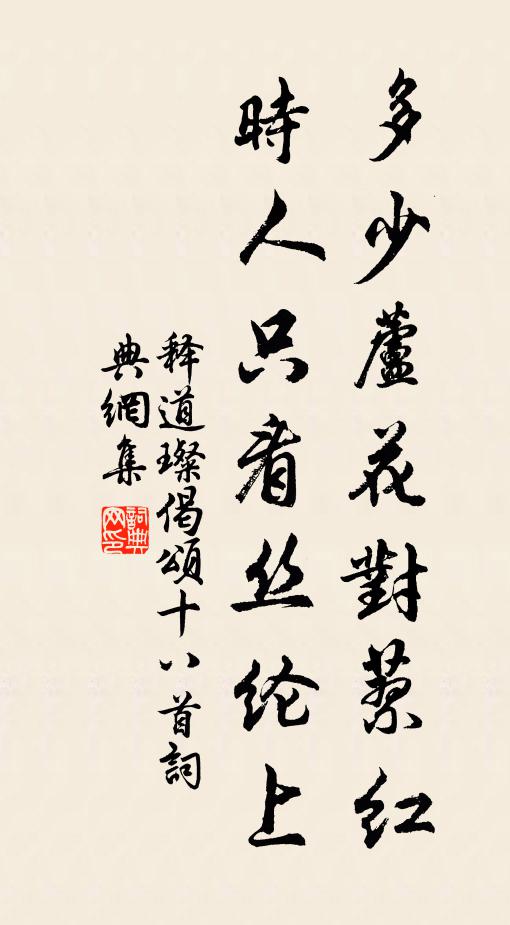 多少蘆花對蓼紅
時人只看丝纶上
释道璨偈頌十八首詞
典網集
詞典
网印